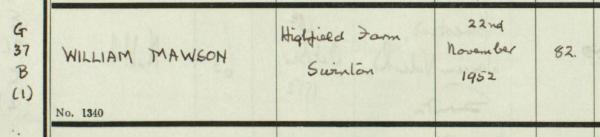 G
37
B
(1)
WILLIAM MAWSON
Highfield Farm
Swinton
22nd
November
1952
82.
No. 1340